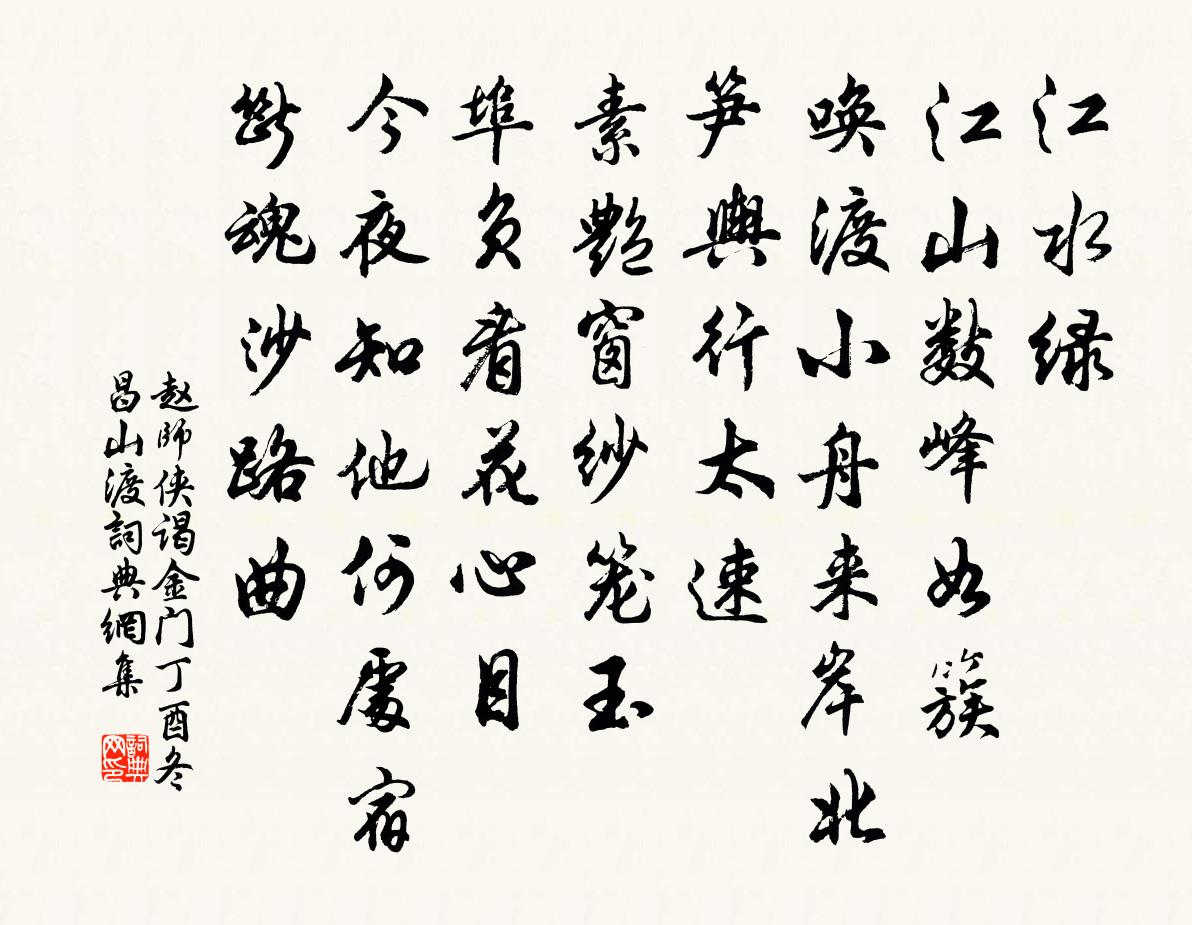 江水绿
江山数峰如簇
唤渡小舟来岸北
笋舆行太速
素艳窗纱笼玉
埠负看花心目
今夜知他何處宿
断魂沙路曲
赵師侠谒金门丁酉冬
昌山渡詞典網集
詞典网印